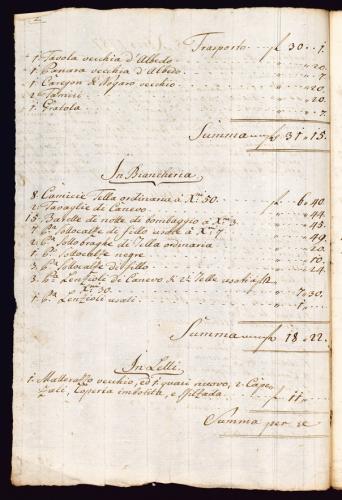 Trasporto ... f 30 . 1.
1. Tavola vecchia d'Albedo ... " 20.
1. Panara vecchia d'Albedo ... " 7.
1. Caregon di Nogaro vecchio ... " 20.
2. Tamisi ... " 20.
1. Gratola ... " 7.
Summa f 31 " 15.
In Biancheria
8. Camicie Tella ordinaria à Xni 50. f 6 " 40.
2. Tavaglie di Canevo " 44.
15. Barette de notte di bombaggio à Xni 3. " 45.
7. pa Sottocalze di fillo usate à Xni 7 " 49.
2. pa Sottobraghe di Tella ordinaria " 20.
1. pa Sottocalze negre " 10.
3. pa Sottocalze di fillo " 24.
3. pa Lenzioli di Canevo di 2 Telle usati à f 2
Xni 30. " 7 " 30.
1. pa Lenzioli usati. " 1 "
Summa f 18 " 22.
In Letti
1. Matterazzo vecchio, ed 1. quasi nuovo, 2. Cape-
zali, Coperta imbotita, e f 11 "
Summa per se